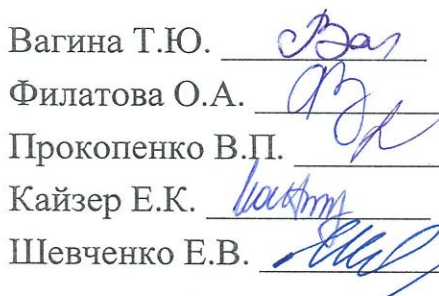 Вагина Т.Ю.
Филатова О.А.
Прокопенко В.П.
Кайзер Е.К.
Шевченко Е.В.